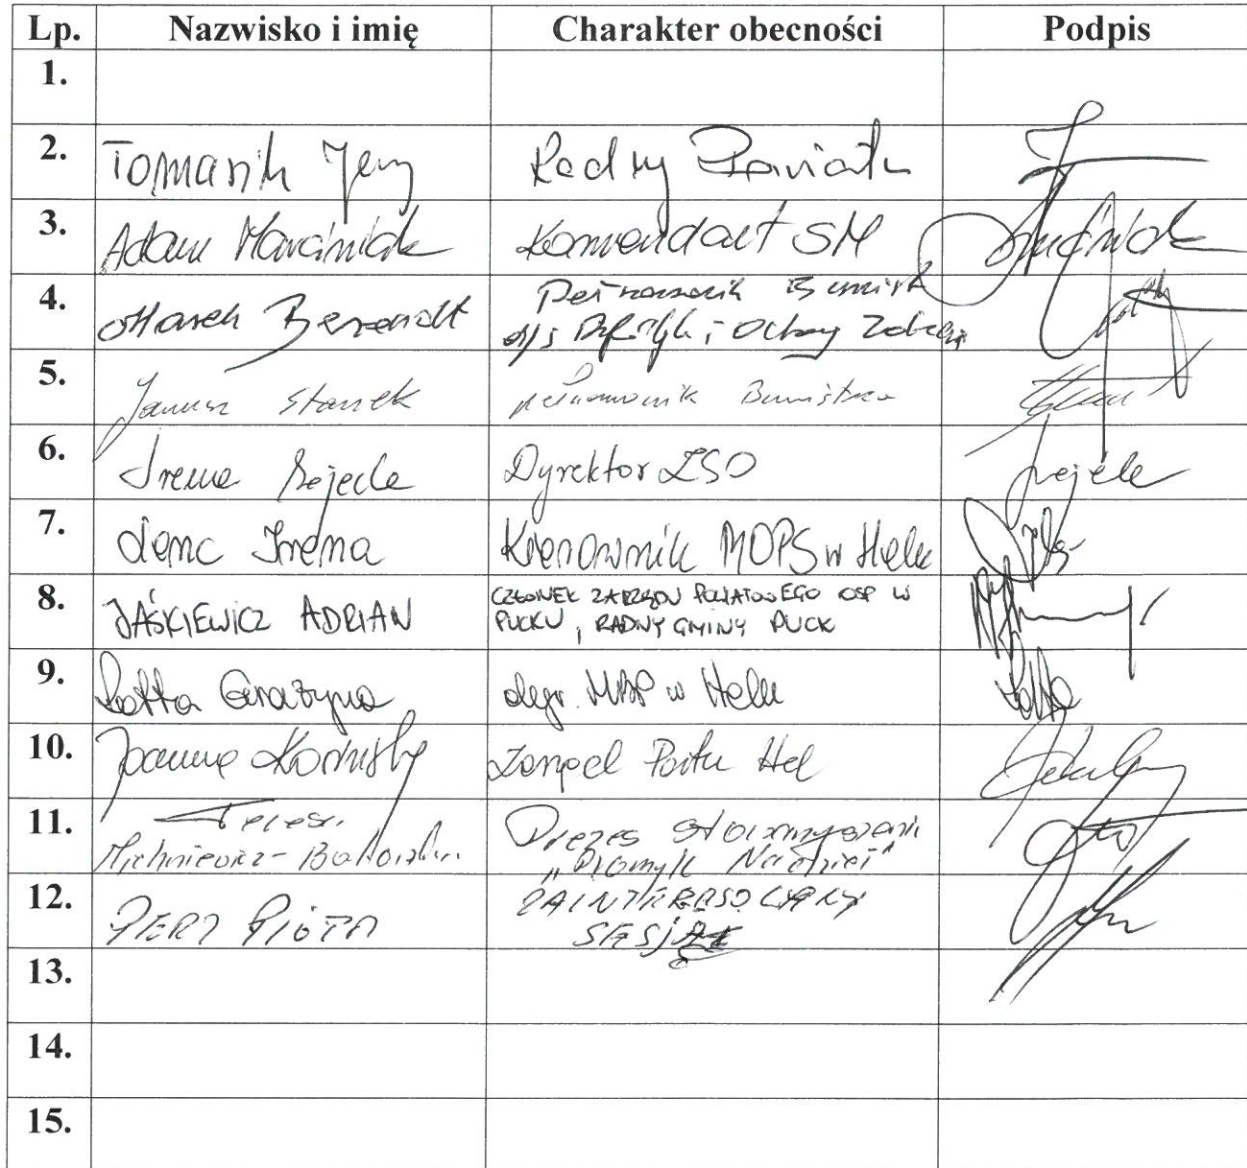 Lp. Nazwisko i imię Charakter obecności Podpis
1.
2. Tomasik Jerzy Radny Powiatu
3. Adam Marciniak Komendant SM Marciniak
4. Marek Berendt Pełnomocnik Burmistrza
d/s Profilakt. i Ochrony Zdrowia
5. Janusz Stanek pełnomocnik Burmistrza
6. Irena Dyrektor ZSO
7. Lenc Irena Kierownik MOPS w Helu
8. JAŚKIEWICZ ADRIAN CZŁONEK ZARZĄDU POWIATOWEGO OSP W
PUCKU, RADNY GMINY PUCK
9. Grażyna dyr. MBP w Helu
10. Joanna Zarząd Portu Hel
11. Teresa Prezes Stowarzyszenia
Michniewicz- "Promyk Nadziei"
12. PERZ PIOTR ZAINTERESOWANY
SESJĄ
13.
14.
15.